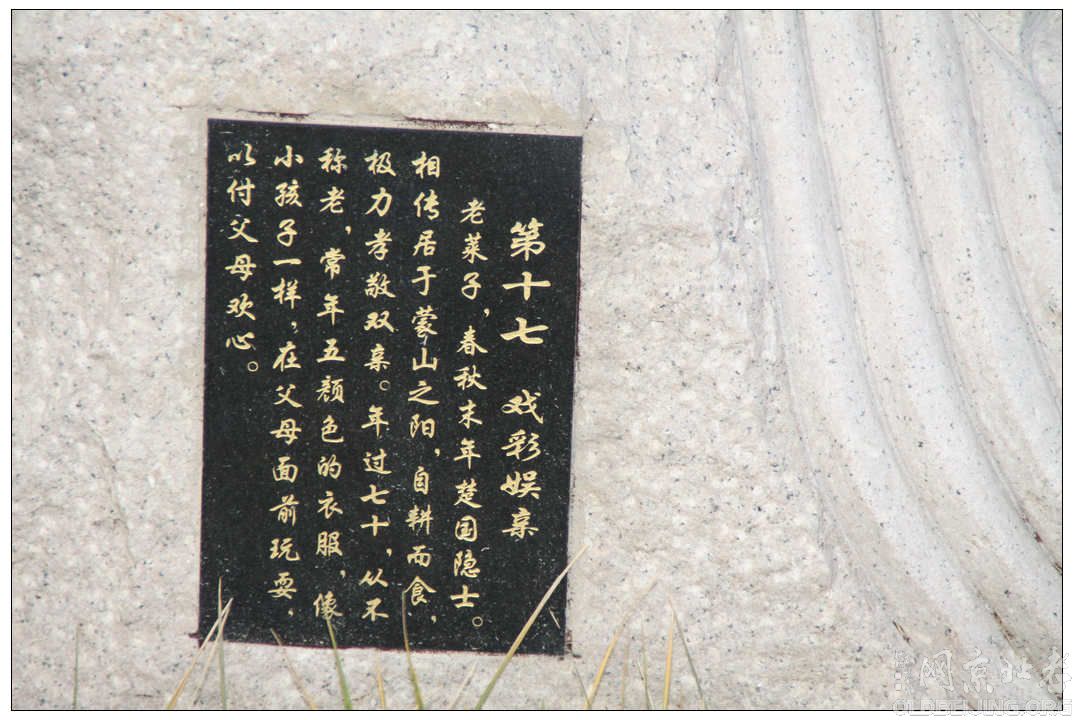 第十七 戏彩娱亲
老菜子，春秋末年楚国隐士。
相传居于蒙山之阳，自耕而食，
极力孝敬双亲。年过七十，从不
称老，常年五颜色的衣服，像
小孩子一样，在父母面前玩耍，
以付父母欢心。
老北京网
OLDBEIJING.ORG